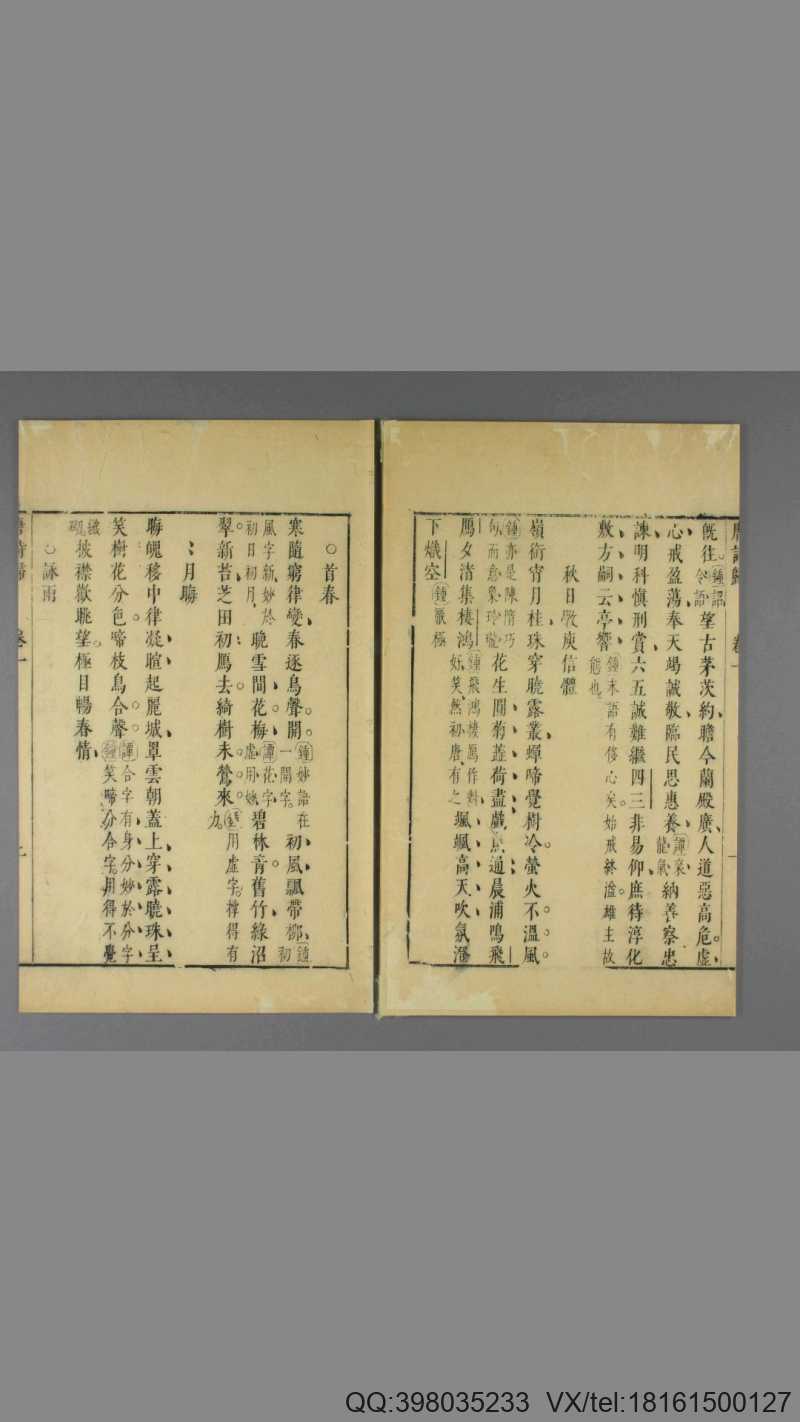 既往鍾詔令語望古茅茨約瞻今蘭殿廣人道惡高危虛
心戒盈蕩奉天竭誠敬臨民思惠養納善察忠
諫明科慎刑賞六五誠難繼四三非易仰庶待淳化
敷方嗣云亭響鍾末語有侈心矣始戒終溢雄主故態也
秋日斆庾信體
嶺銜宵月桂珠穿曉露叢蟬啼覺樹冷螢火不溫風
鍾亦是陳隋巧句而意象玲瓏花生圓菊蕋荷盡戲魚通晨浦鳴飛
鴈夕渚集棲鴻鍾飛鴻棲鴈作對妙笑然初唐有之颯颯高天吹氛澄
下熾空鍾嚴極
○首春
寒隨窮律變春逐鳥聲開鍾妙語在一開字初風飄帶柳鍾初
風字新妙於初日初月晚雪間花梅譚花字虛用妙碧林青舊竹綠沼
翠新苔芝田初鴈去綺樹未鶯來鍾用虛字撐得有力
月晦
晦魄移中律凝暄起麗城罩雲朝蓋上穿露曉珠呈
笑樹花分色啼枝鳥合聲譚合字有身分妙於分字鍾笑啼分合字用得不覺
纖砌披襟歡眺望極目暢春情
○詠雨
QQ:398035233 VX/tel:18161500127